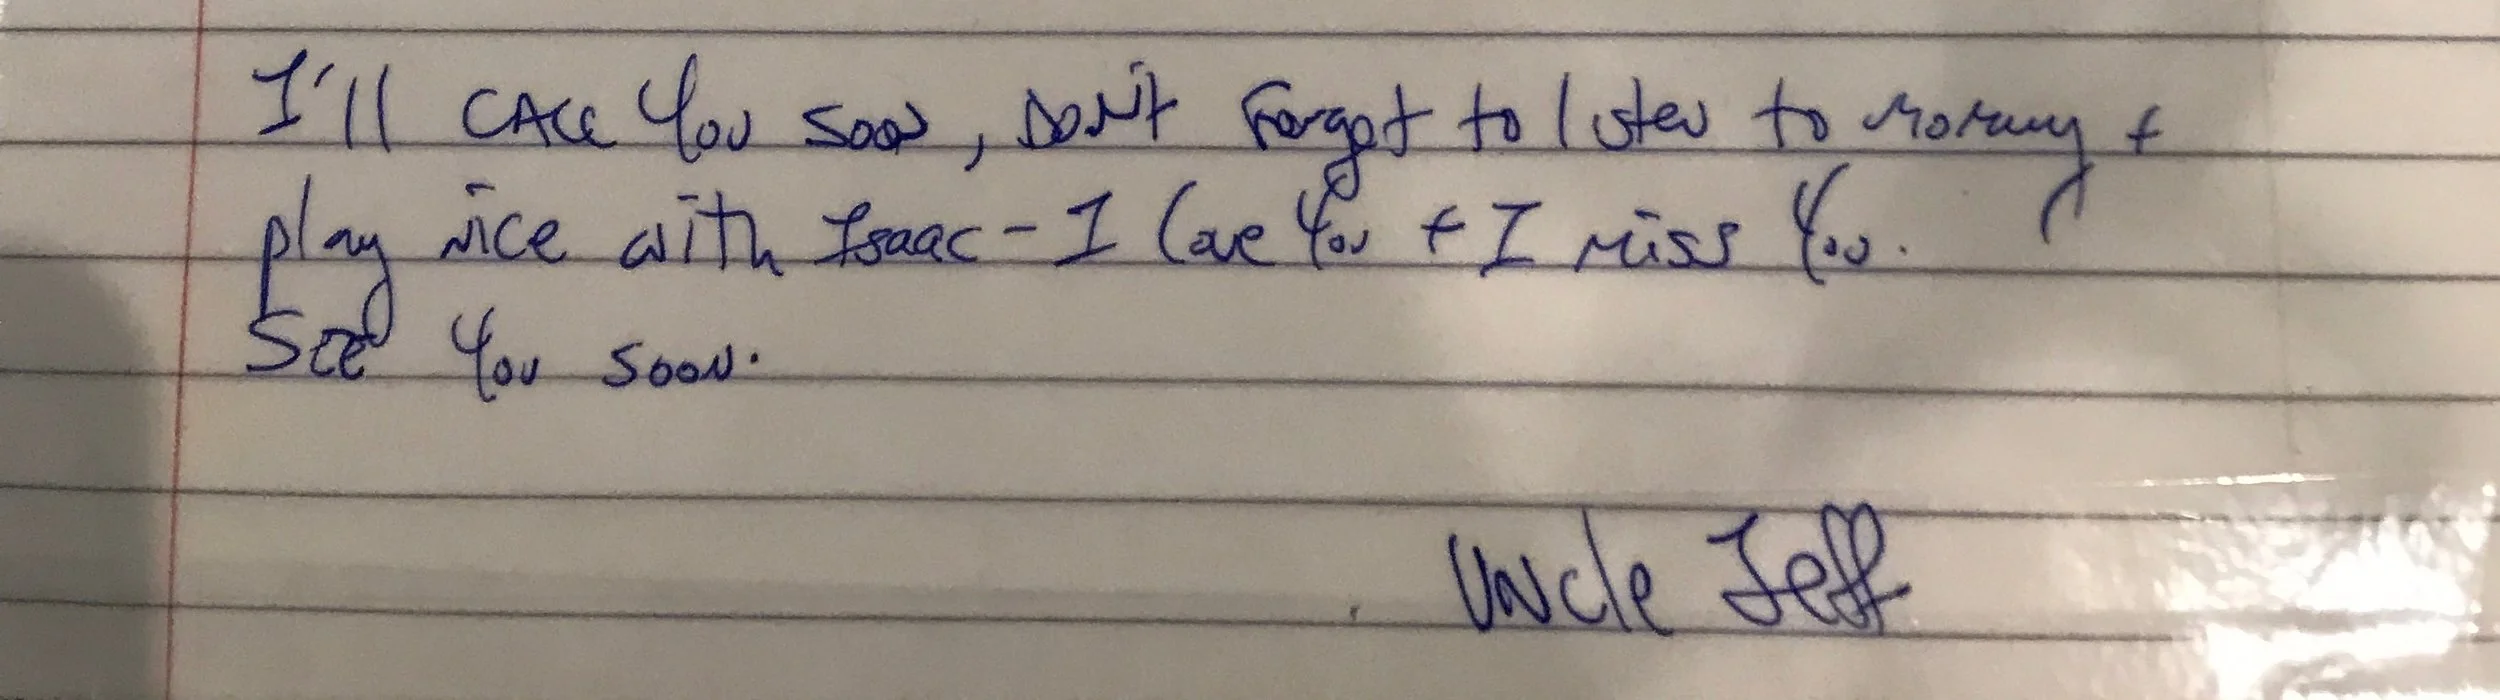 I'll CALL You soon, DON't Forget to listen to Mommy +
play nice with Isaac - I Love You + I miss You.
SEE You soon.
Uncle Jeff